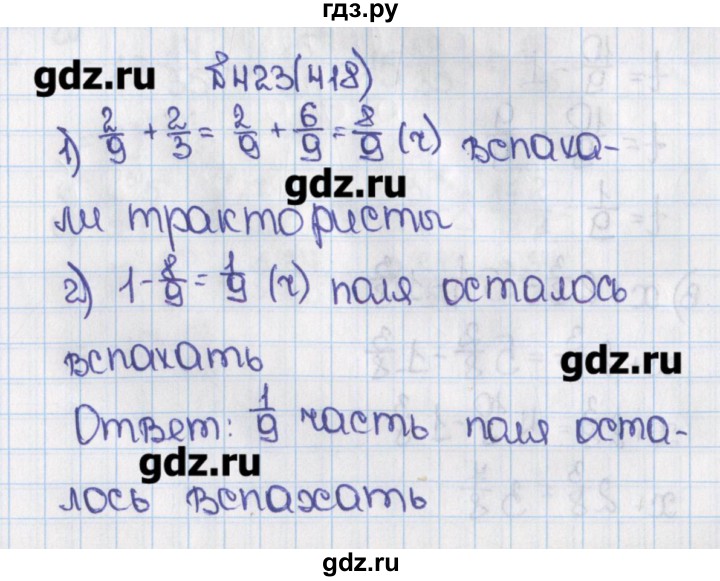 гдз.ру
gdz.ru
№423(418)
1) 2/9 + 2/3 = 2/9 + 6/9 = 8/9 (ч) вспаха-
gdz.ru
ли трактористы
2) 1 - 8/9 = 1/9 (ч) поля осталось
вспахать
gdz.ru
Ответ: 1/9 часть поля оста-
gdz.ru
лось вспахать
gdz.ru